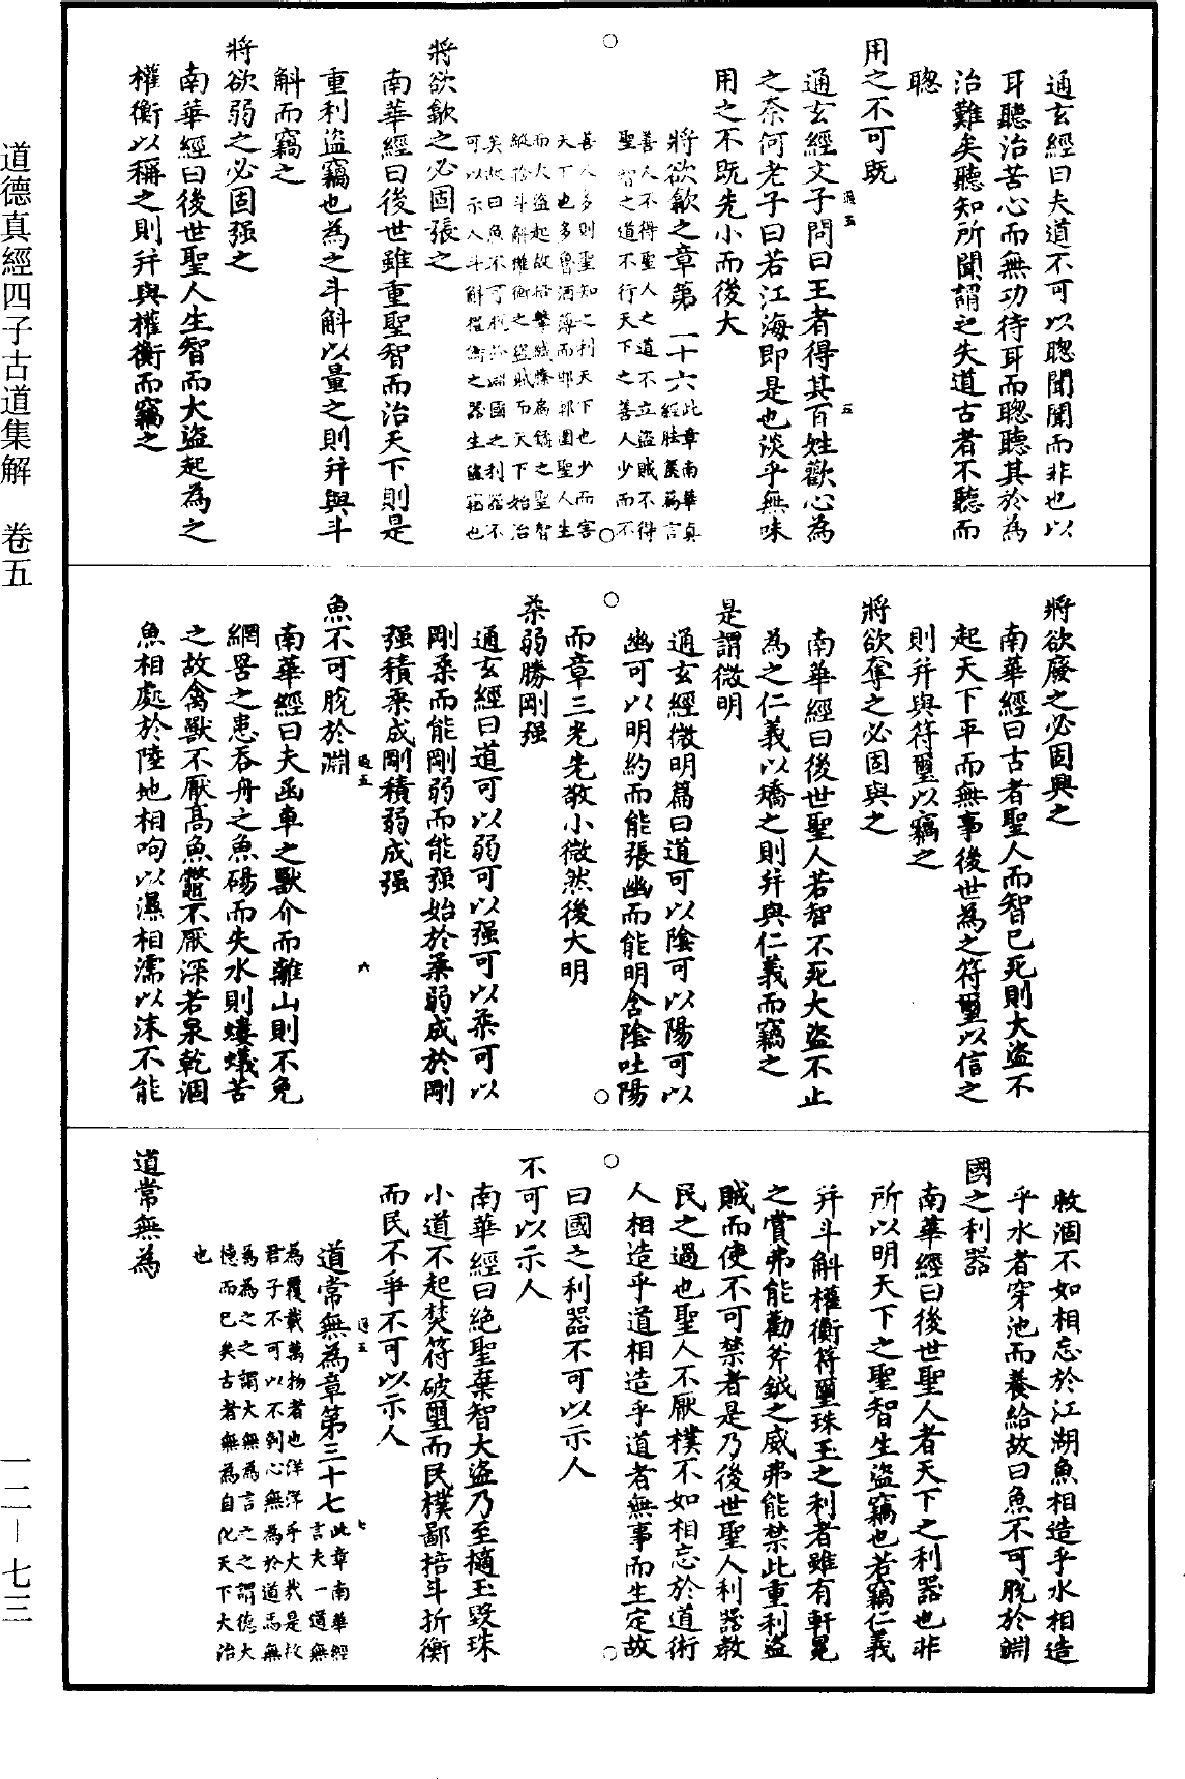 道德真經四子古道集解　卷五
通玄經曰夫道不可以聦聞聞而非也以
耳聽治苦心而無功待耳而聦聽其於為
治難矣聽知所聞謂之失道古者不聽而
聦
用之不可既
通玄經文子問曰王者得其百姓歡心為
之柰何老子曰若江海即是也淡乎無味
用之不既先小而後大
將欲歙之章第三十六此章南華真
經胠篋篇言
善人不得聖人之道不立盜賊不得
聖智之道不行天下之善人少而不
善人多則聖知之利天下也少而害
天下也多魯酒薄而邯鄲圍聖人生
而大盜起故掊擊
縱捨斗斛權衡之盜賊而天下始治
矣故曰魚不可脫於淵國之利器不
可以示人斗斛權衡之器生盜竊也
將欲歙之必固張之
南華經曰後世雖重聖智而治天下則是
重利盜竊也為之斗斛以量之則并與斗
斛而竊之
將欲弱之必固强之
南華經曰後世聖人生智而大盜起為之
權衡以稱之則并與權衡而竊之
將欲廢之必固興之
南華經曰古者聖人而智已死則大盜不
起天下平而無事後世為之符璽以信之
則并與符璽以竊之
將欲奪之必固與之
南華經曰後世聖人若智不死大盜不止
為之仁義以矯之則并與仁義而竊之
是謂微明
通玄經微明篇曰道可以陰可以陽可以
幽可以明約而能張幽而能明含陰吐陽
而章三光先敬小微然後大明
柔弱勝剛强
通玄經曰道可以弱可以强可以柔可以
剛柔而能剛弱而能强始於柔弱成於剛
强積柔成剛積弱成强
魚不可脫於淵
南華經曰夫函車之獸介而離山則不免
網罟之患吞舟之魚碭而失水則螻蟻苦
之故禽獸不厭高魚鼈不厭深若泉乾涸
魚相處於陸地相呴以濕相濡以沫不能
救涸不如相忘於江湖魚相造乎水相造
乎水者穿池而養給故曰魚不可脫於淵
國之利器
南華經曰後世聖人者天下之利器也非
所以明天下之聖智生盜竊也若竊仁義
并斗斛權衡符璽珠玉之利者雖有軒冕
之賞弗能勸斧鉞之威弗能禁此重利盜
賊而使不可禁者是乃後世聖人利器教
民之過也聖人不厭樸不如相忘於道術
人相造乎道相造乎道者無事而生定故
曰國之利器不可以示人
不可以示人
南華經曰絕聖棄智大盜乃至擿玉毀珠
小道不起焚符破璽而民樸鄙掊斗折衡
而民不爭不可以示人
道常無為章第三十七此章南華經
言夫一道無
為覆載萬物者也洋洋乎大哉是故
君子不可以不刳心無為於道焉無
為為之之謂大無為言之之謂德大
德而已矣古者無為自化天下大治
也
道常無為
一二－七三